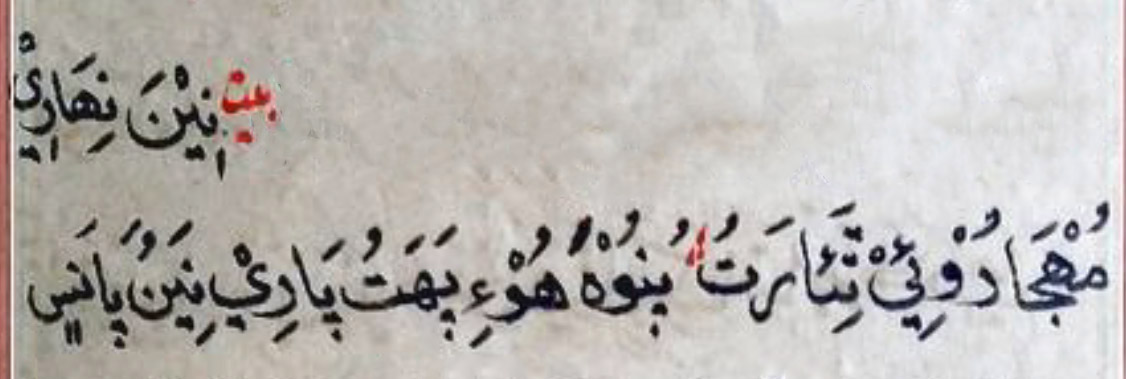 بيت نِيْنَ نِهَارِيْ
مُهْجَا دُوْئِيْ تِئَا رَتُ پُنُوْهُ هُوْءِ پَهَتُ پَارِيْ نِيَنُ پَانَسِ